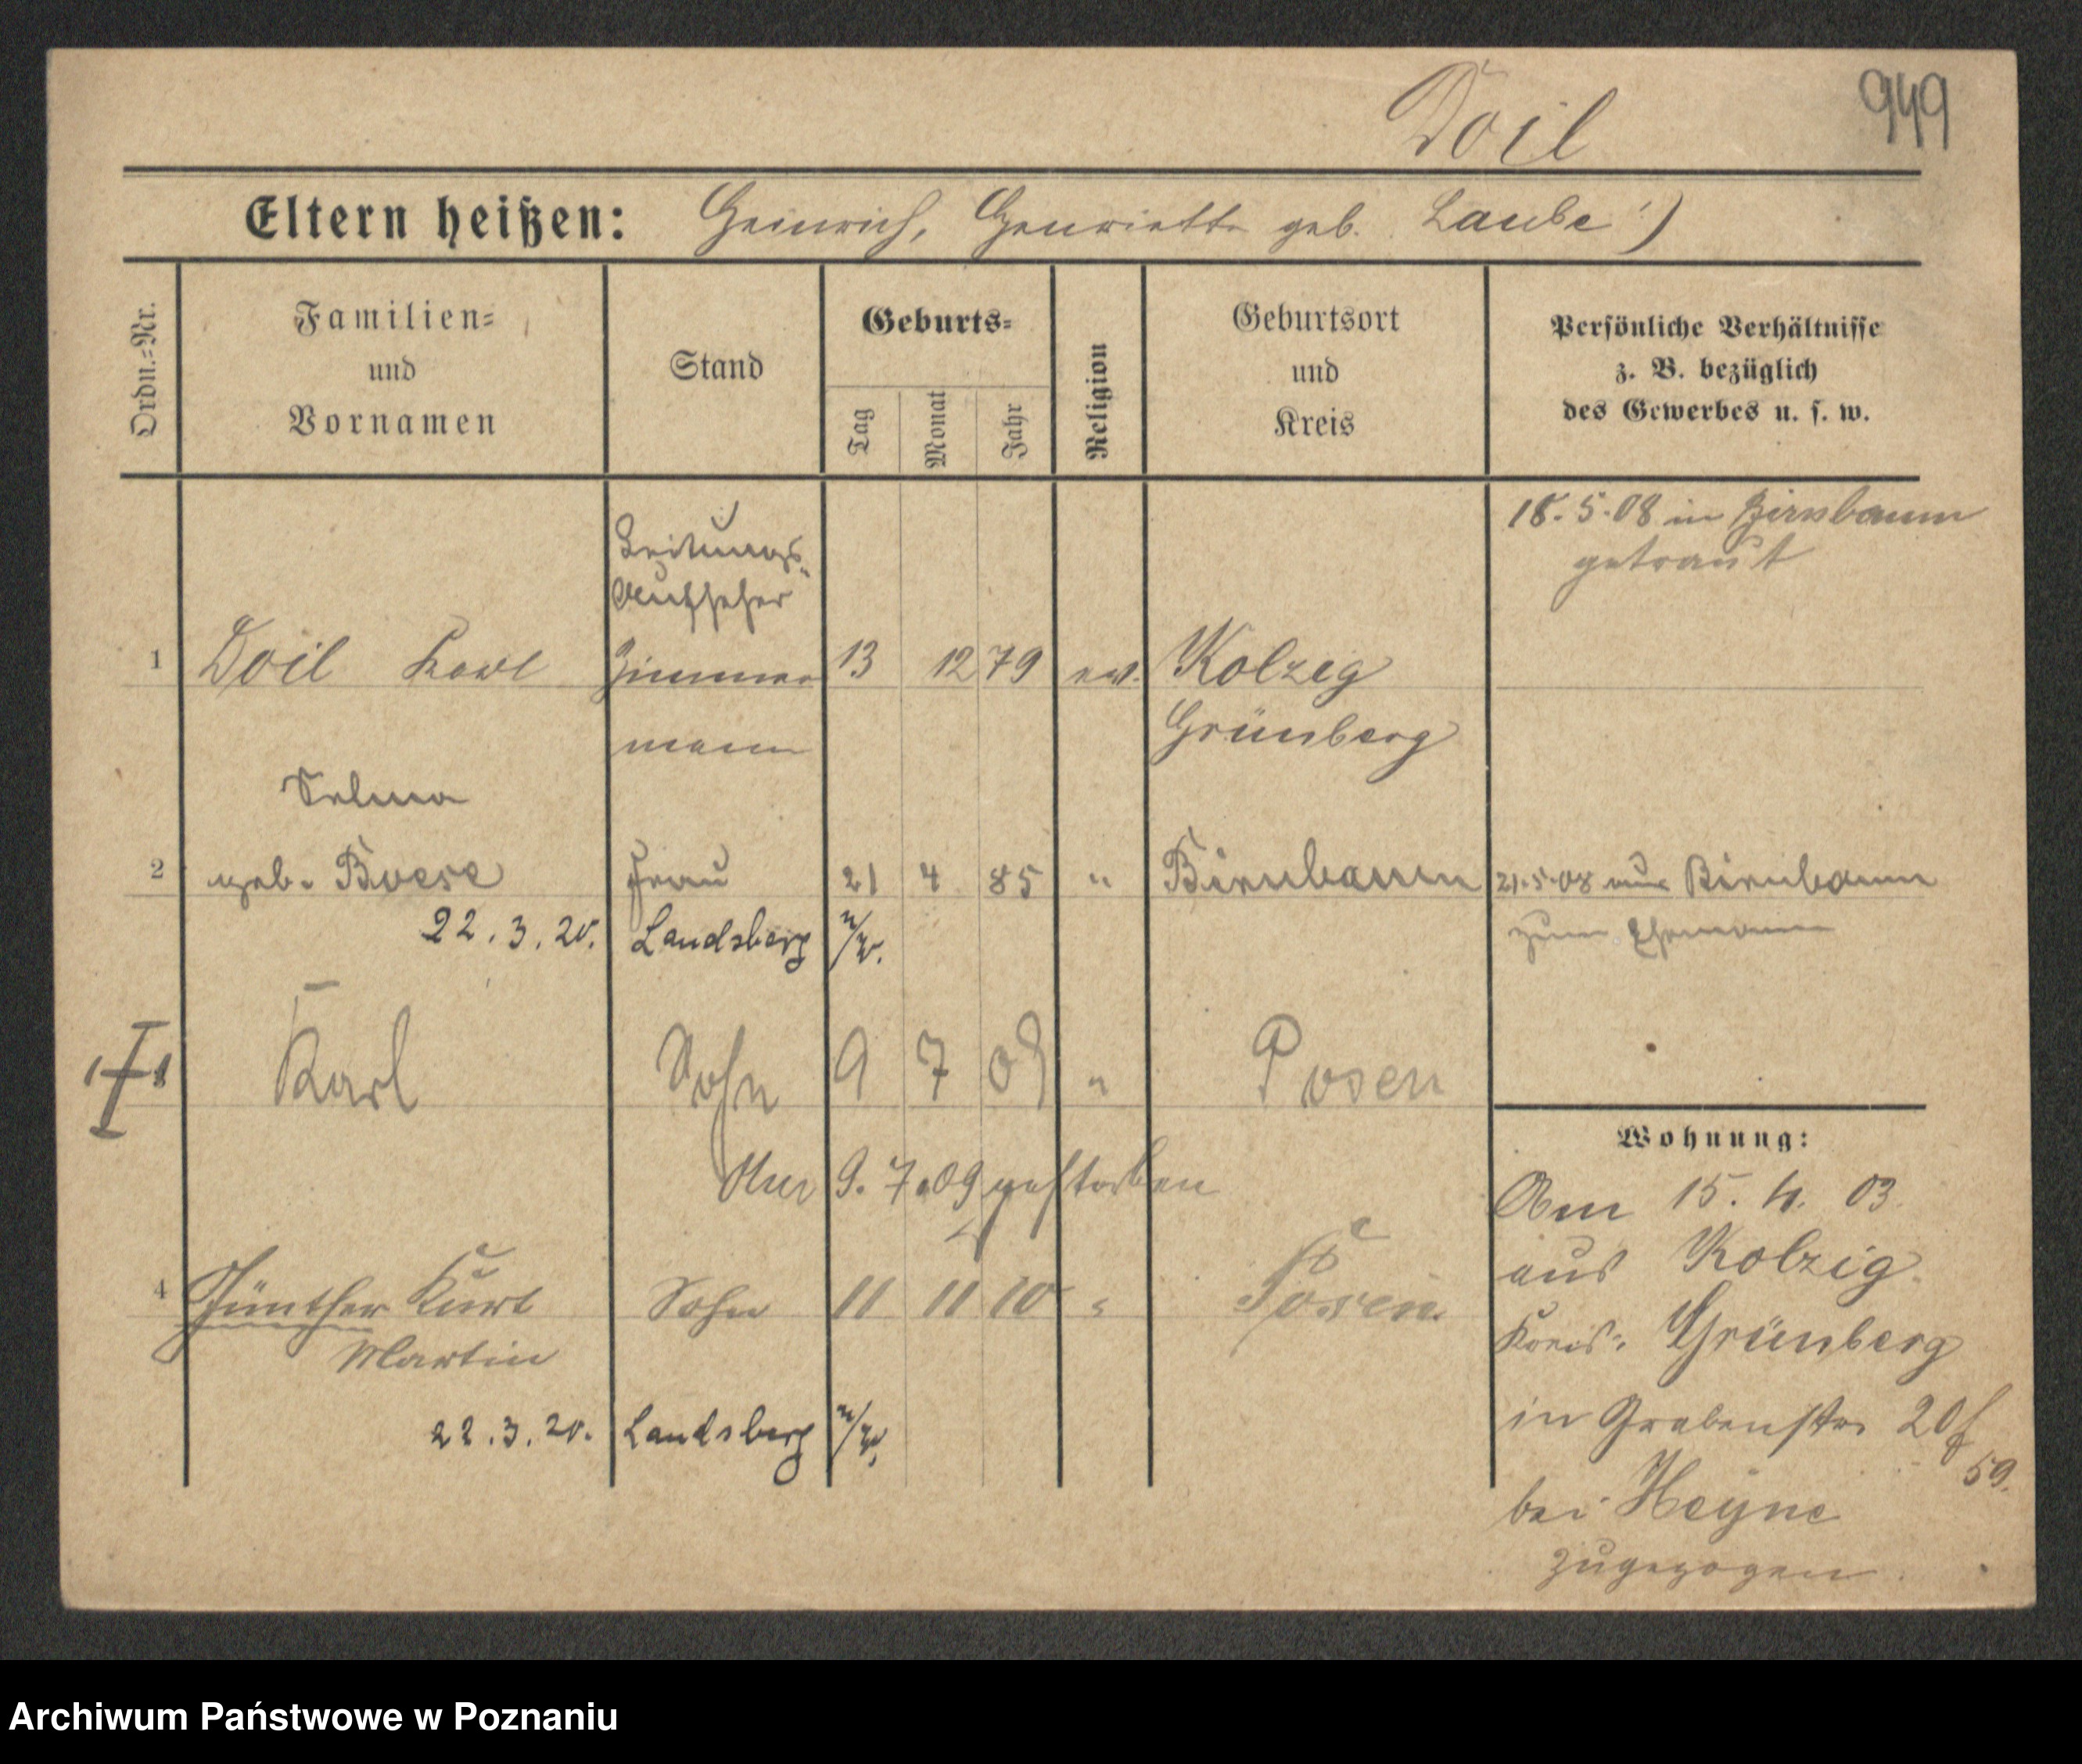 Doil
949
Eltern heißen: Heinrich, Henriette geb. Laube)
Ordn.=Nr.
Familien=
und
Vornamen
Stand
Geburts=
Tag
Monat
Jahr
Religion
Geburtsort
und
Kreis
Persönliche Verhältnisse
z. B. bezüglich
des Gewerbes u. s. w.
18.5.08 in Birnbaum
getraut
Leitungs-
Aufseher
1 Doil Karl Zimmer 13 12 79 ev. Kolzig
mann Grünberg
Selma
2 geb. Boese Frau 21 4 85 " Birnbaum 21.5.08 aus Birnbaum
zum Ehemann
22.3.20. Landsberg a/W.
Karl Sohn 9 7 09 " Posen
Am 9.7.09 gestorben
4 Günther Kurt Sohn 11 11 10 " Posen
Martin
22.3.20. Landsberg a/W.
Wohnung:
Am 15. 4. 03
aus Kolzig
Kreis: Grünberg
in Grabenstr. 20
bei Heyne
zugezogen
Archiwum Państwowe w Poznaniu